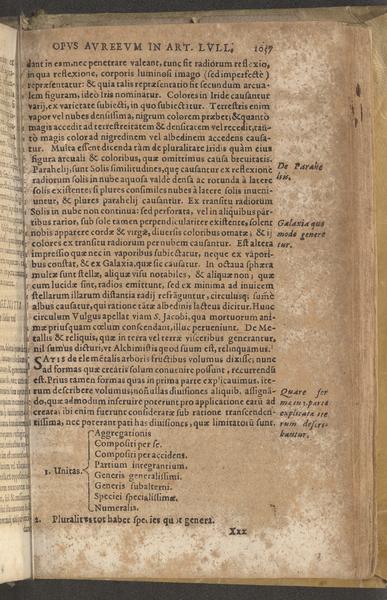 OPVS AVREEVM IN ART. LVLL. 1057
dant in eam, nec penetrare valeant, tunc fit radiorum reflexio,
in qua reflexione, corporis luminosi imago (sed imperfectè)
repræsentatur: & quia talis repræsentatio fit secundum arcua-
lem figuram, ideò Iris nominatur. Colores in Iride causantur
varij, ex varietate subiecti, in quo subiectatur. Terrestris enim
vapor vel nubes densissima, nigrum colorem præbet, & quantò
magis accedit ad terrestreitatem & densitatem vel recedit, tan-
tò magis color ad nigredinem vel albedinem accedens causa-
tur. Multa essent dicenda tàm de pluralitate Iridis quàm eius
figura arcuali & coloribus, quæ omittimus causa breuitatis.
Parahelij sunt Solis similitudines, quę causantur ex reflexione
radiorum solis in nube aquosa valde densa ac rotunda à latere
solis existente; si plures consimiles nubes à latere solis inueni-
untur, & plures parahelij causantur. Ex transitu radiorum
Solis in nube non continua: sed perforata, vel in aliquibus par-
tibus rarior, sub sole tamen perpendiculariter existente, solent
nobis apparere cordæ & virgæ, diuersis coloribus ornatæ, & ij
colores ex transitu radiorum per nubem causantur. Est altera
impressio quæ nec in vaporibus subiectatur, neque ex vapori-
bus constat, & ex Galaxia, quæ sic causatur. In octaua sphæra
multæ sunt stellæ, aliquæ visu notabiles, & aliquæ non; quæ
cum lucidæ sint, radios emittunt, sed ex minima ad inuicem
stellarum illarum distantia radij refrãguntur, circulusq; suime
albus causatur, qui ratione tãtæ albedinis lacteus dicitur. Hunc
circulum Vulgus apellat viam S. Jacobi, qua mortuorum ani-
mæ priusquam cœlum consendant, illuc perueniunt. De Me-
tallis & reliquis, quæ in terra vel terræ visceribus generantur,
nil sumus dicturi, vt Alchimistis quod suum est, relinquamus.
SATIS de elemẽtalis arboris fructibus volumus dixisse; nunc
ad formas quæ creatis solum conuenire possunt, recurrendũ
est. Prius tamen formas quas in prima parte explicauimus, ite-
rum describere volumus, nõnullas diuisiones aliquib. assignã-
do, quæ admodum inseruire poterunt pro applicatione earũ ad
creata: ibi enim fuerunt consideratæ sub ratione transcenden-
tissima, nec poterant pati has diuisiones, quæ limitatoiũ sunt.
De Parahe
lijs.
Galaxia quo
modo genere
tur.
Quare for
mæ in 1. parte
explicatæ ite
rum descri-
bantur.
1. Unitas.
Aggregationis
Compositi per se.
Compositi per accidens.
Partium integrantium.
Generis generalissimi.
Generis subalterni.
Speciei specialissimæ.
Numeralis.
2. Pluralitas tot habet species quot genera.
Xxx